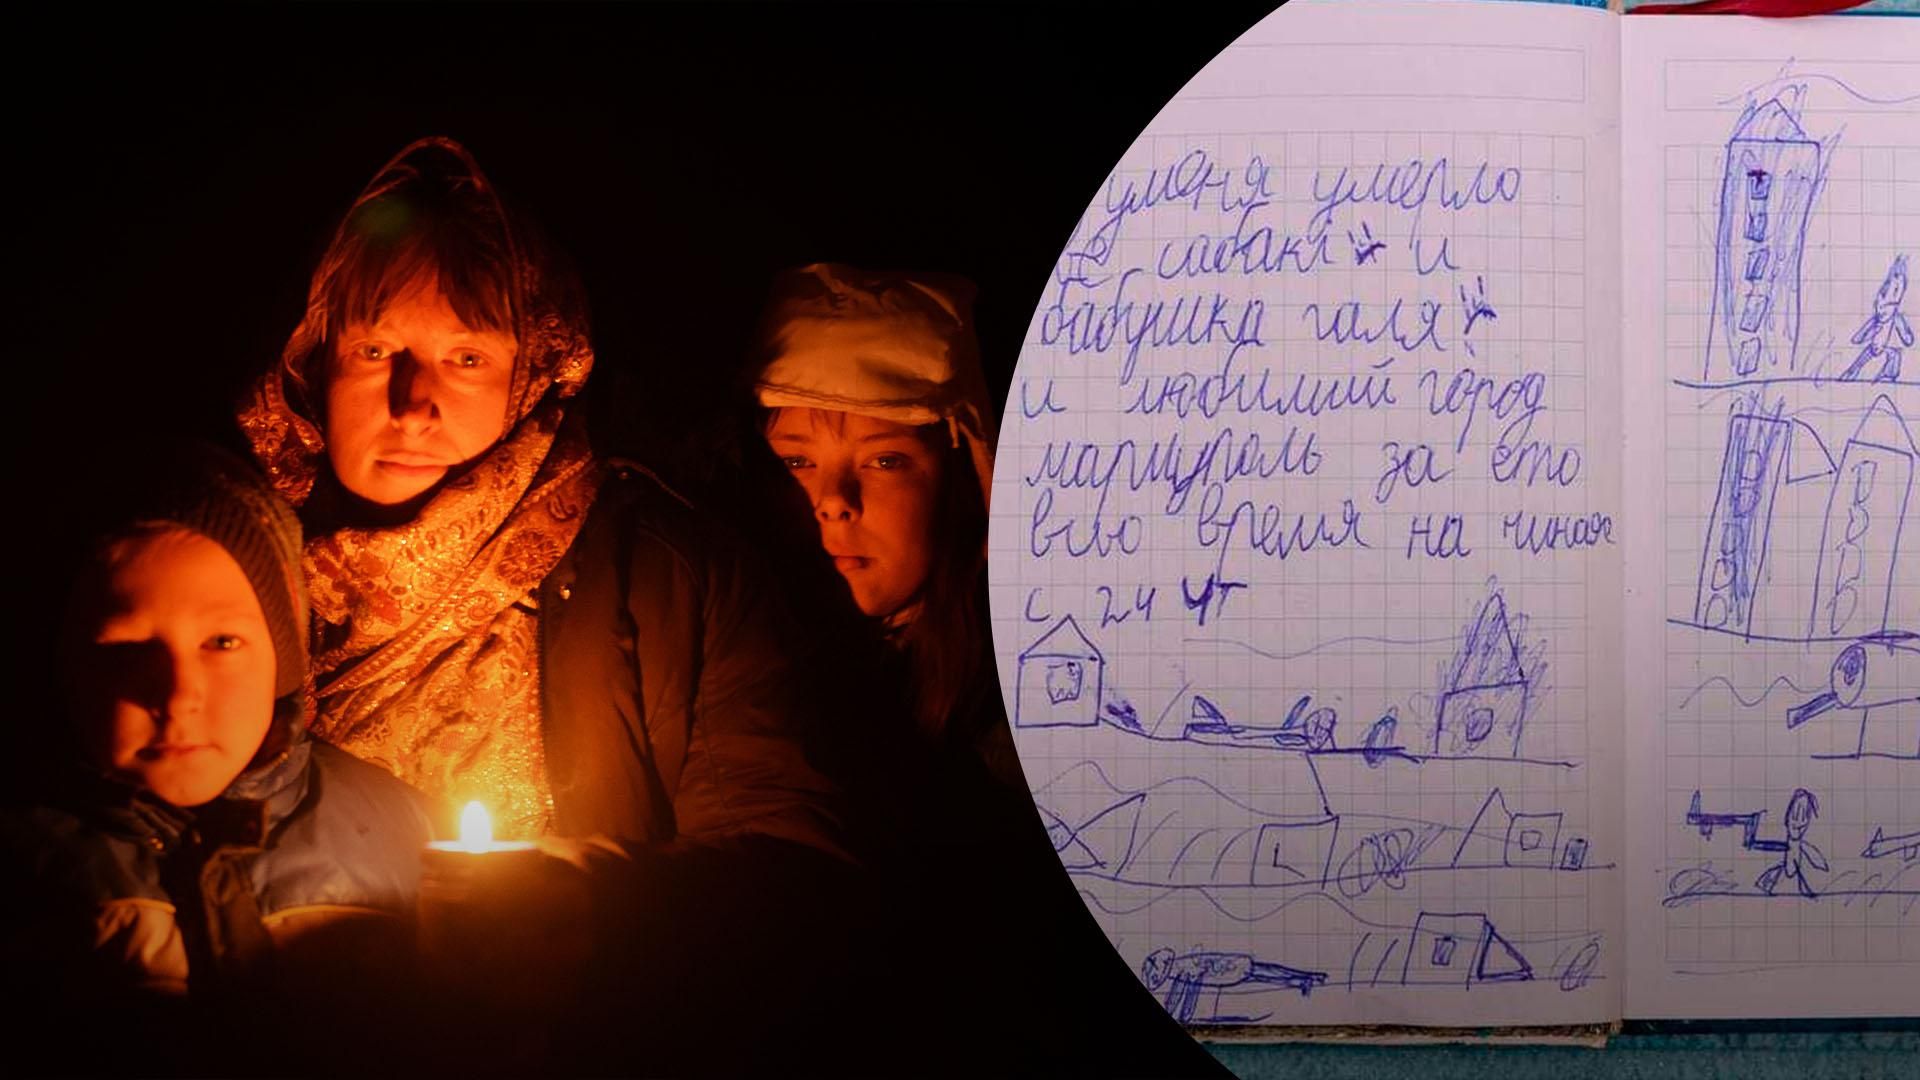 уменя умерло
2е собаки и
бабушка галя
и любимий город
мариуполь за ето
всьо время на чиная
с 24 чт